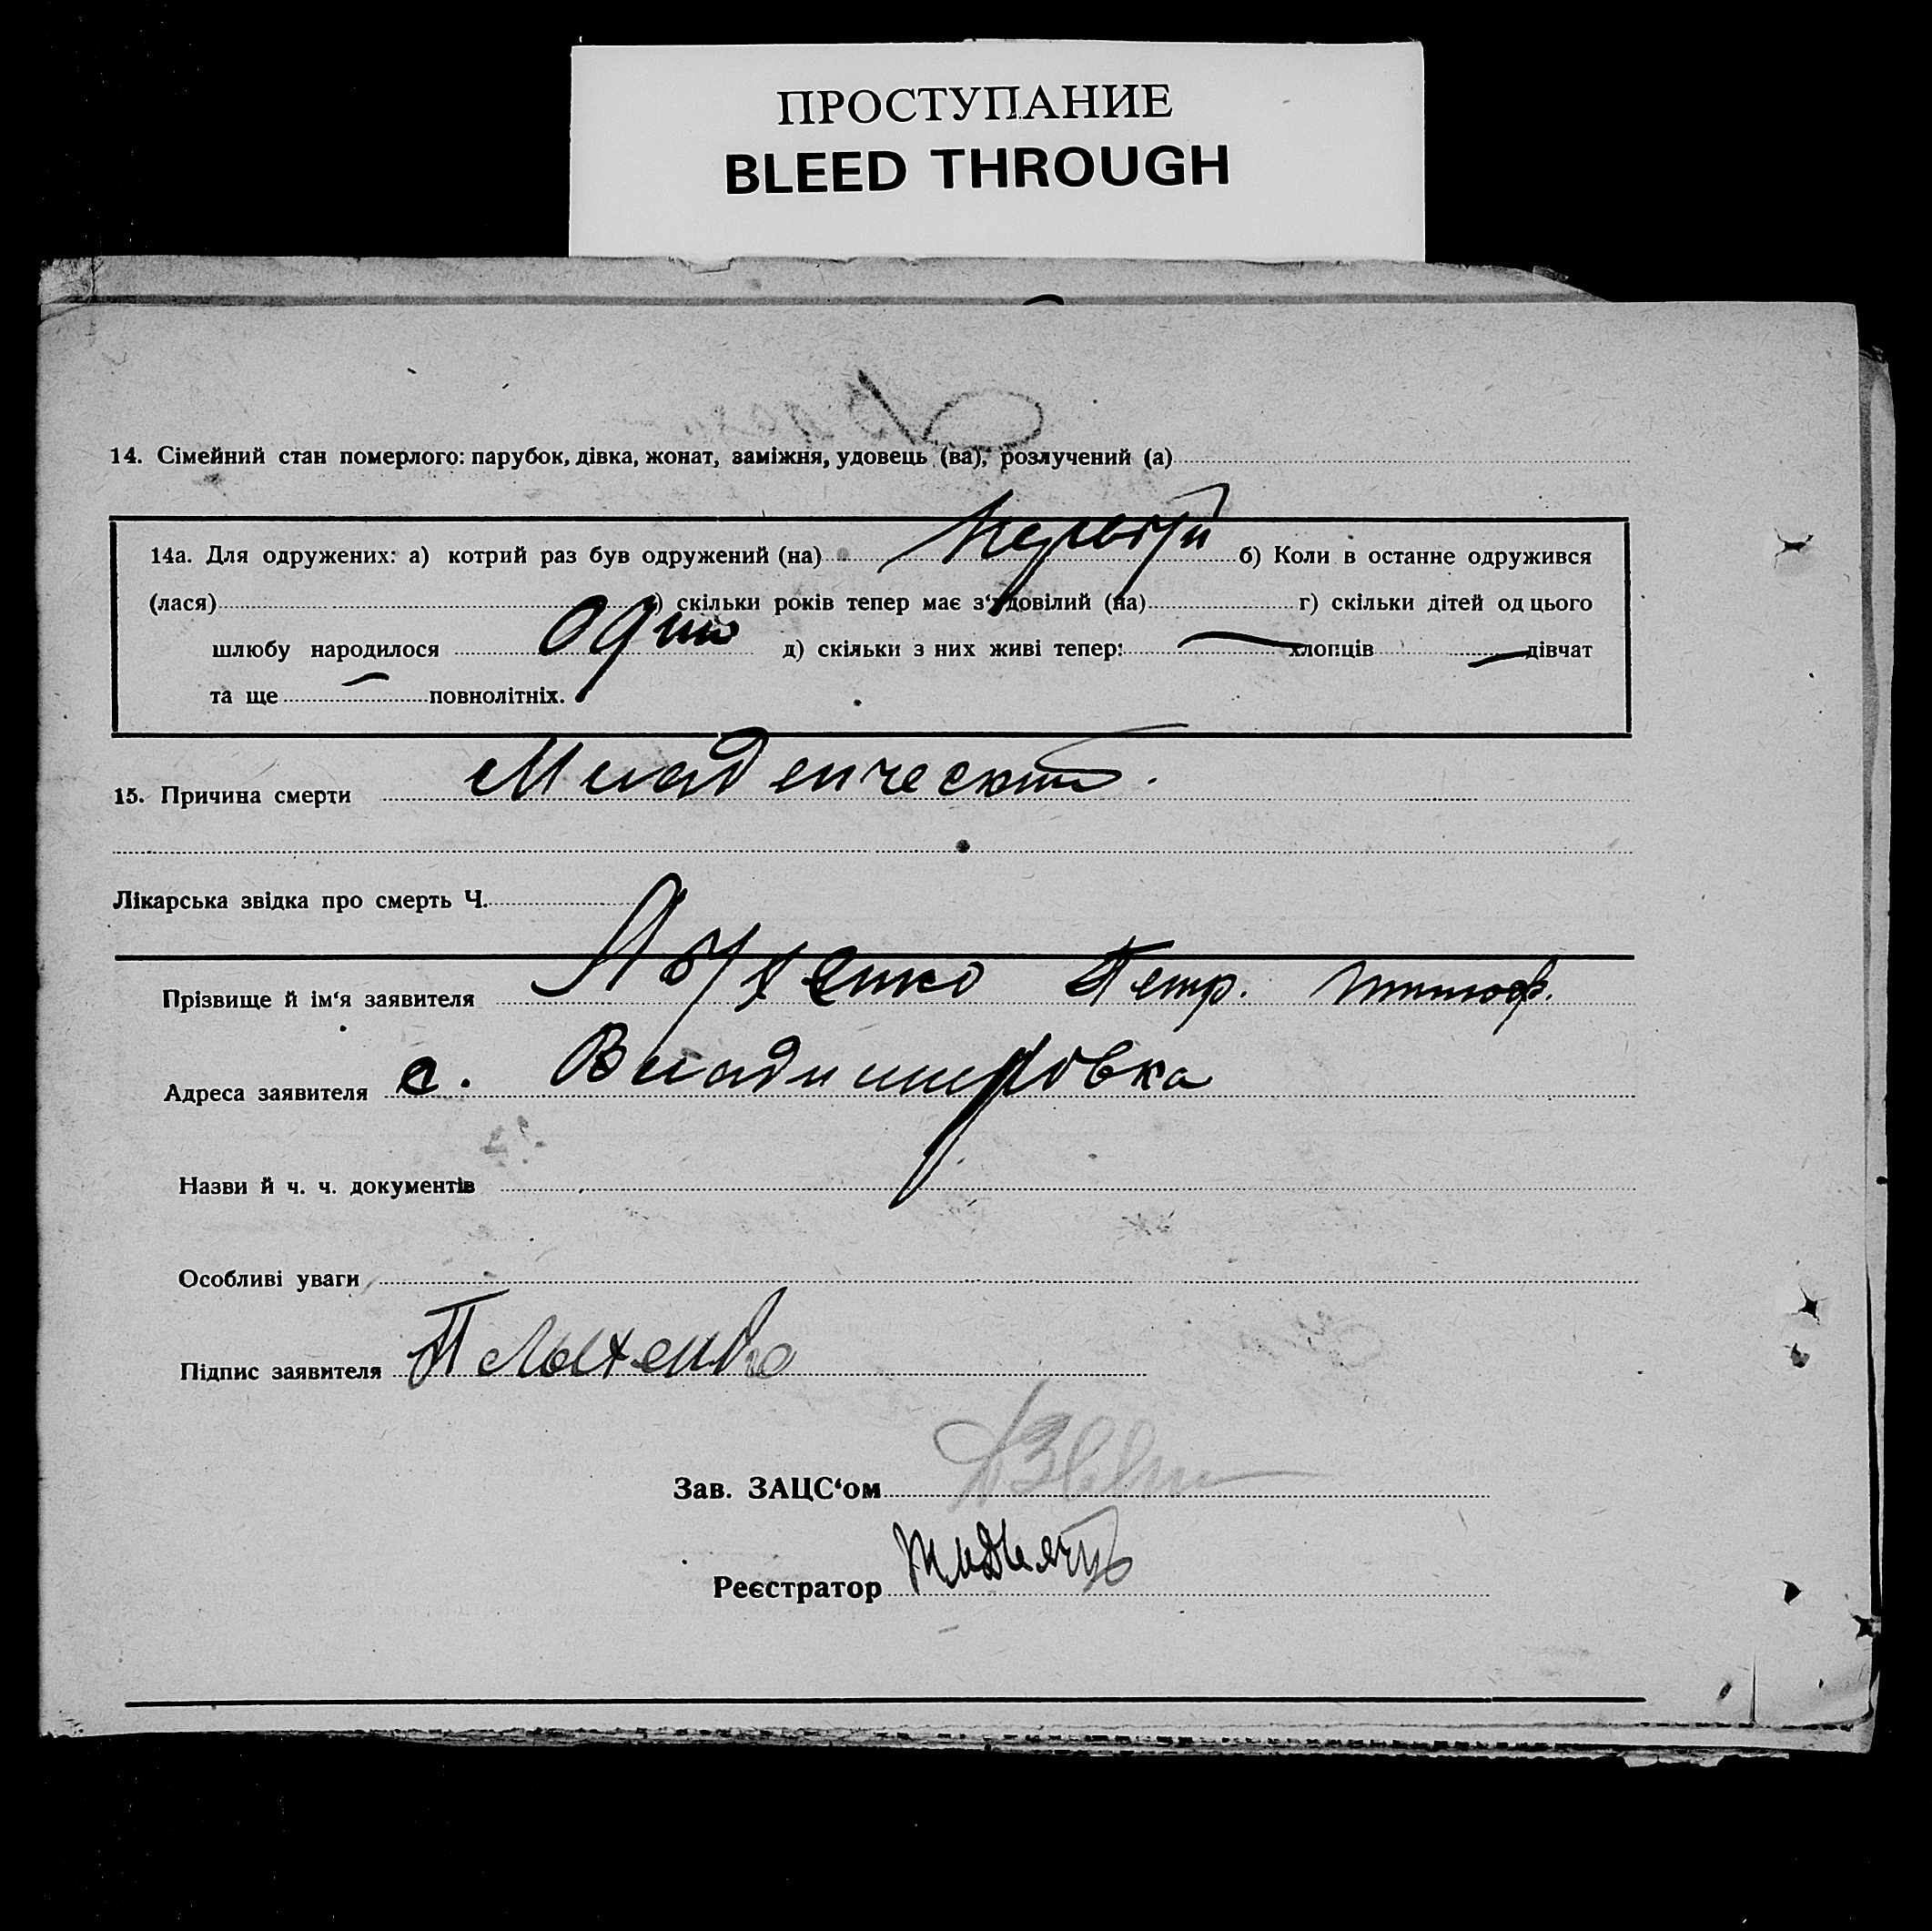 ПРОСТУПАНИЕ
BLEED THROUGH
14. Сімейний стан померлого: парубок, дівка, жонат, заміжня, удовець (ва), розлучений (а)
14а. Для одружених: а) котрий раз був одружений (на) Первый б) Коли в останнє одружився
(лася) скільки років тепер має з'удовілий (на) г) скільки дітей од цього
шлюбу народилося один д) скільки з них живі тепер: — хлопців — дівчат
та ще — повнолітніх.
15. Причина смерти Младенческая.
Лікарська звідка про смерть Ч.
Прізвище й ім'я заявителя Петр.
Адреса заявителя с. Владимировка
Назви й ч. ч. документів
Особливі уваги
Підпис заявителя
Зав. ЗАЦС'ом
Реєстратор